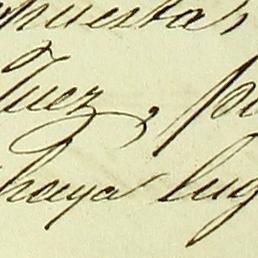 puestas
Juez, pu
haya lug